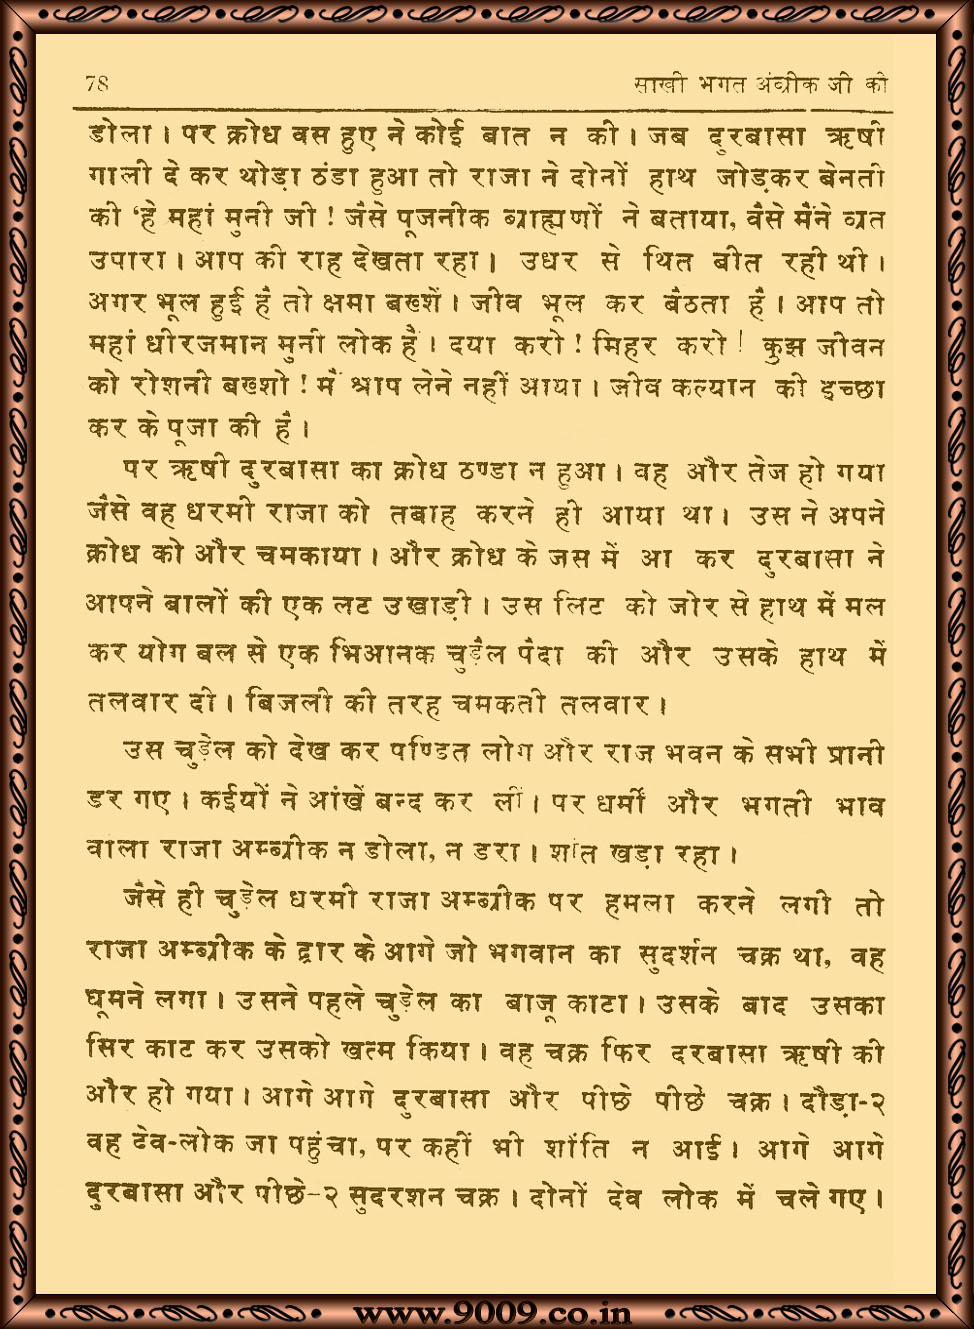 78 साखी भगत अंब्रीक जी की
डोला। पर क्रोध वस हुए ने कोई बात न की। जब दुरबासा ऋषी
गाली दे कर थोड़ा ठंडा हुआ तो राजा ने दोनों हाथ जोड़कर बेनती
की ‘हे महां मुनी जी ! जैसे पूजनीक ब्राह्मणों ने बताया, वैसे मैंने व्रत
उपारा। आप की राह देखता रहा। उधर से थित बीत रही थी।
अगर भूल हुई है तो क्षमा बख्शें। जीव भूल कर बैठता है। आप तो
महां धीरजमान मुनी लोक हैं। दया करो ! मिहर करो ! कुझ जीवन
को रोशनी बख्शो ! मैं श्राप लेने नहीं आया। जीव कल्यान की इच्छा
कर के पूजा की है।
पर ऋषी दुरबासा का क्रोध ठण्डा न हुआ। वह और तेज हो गया
जैसे वह धरमी राजा को तबाह करने ही आया था। उस ने अपने
क्रोध को और चमकाया। और क्रोध के जस में आ कर दुरबासा ने
आपने बालों की एक लट उखाड़ी। उस लिट को जोर से हाथ में मल
कर योग बल से एक भिआनक चुड़ैल पैदा की और उसके हाथ में
तलवार दी। बिजली की तरह चमकती तलवार।
उस चुड़ेल को देख कर पण्डित लोग और राज भवन के सभी प्रानी
डर गए। कईयों ने आंखें बन्द कर लीं। पर धर्मी और भगती भाव
वाला राजा अम्ब्रीक न डोला, न डरा। शांत खड़ा रहा।
जैसे ही चुड़ेल धरमी राजा अम्ब्रीक पर हमला करने लगी तो
राजा अम्ब्रीक के द्वार के आगे जो भगवान का सुदर्शन चक्र था, वह
घूमने लगा। उसने पहले चुड़ेल का बाजू काटा। उसके बाद उसका
सिर काट कर उसको खत्म किया। वह चक्र फिर दरबासा ऋषी की
और हो गया। आगे आगे दुरबासा और पीछे पीछे चक्र। दौड़ा-२
वह देव-लोक जा पहुंचा, पर कहीं भी शांति न आई। आगे आगे
दुरबासा और पीछे-२ सुदरशन चक्र। दोनों देव लोक में चले गए।
www.9009.co.in